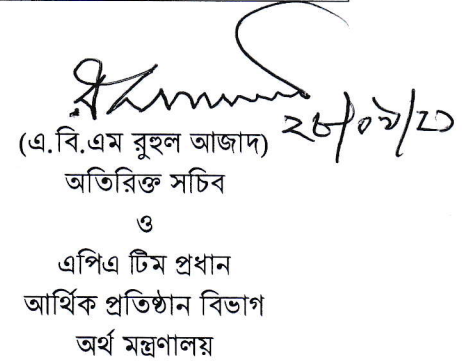 ২৮/০৯/২১
(এ.বি.এম রুহুল আজাদ)
অতিরিক্ত সচিব
ও
এপিএ টিম প্রধান
আর্থিক প্রতিষ্ঠান বিভাগ
অর্থ মন্ত্রণালয়